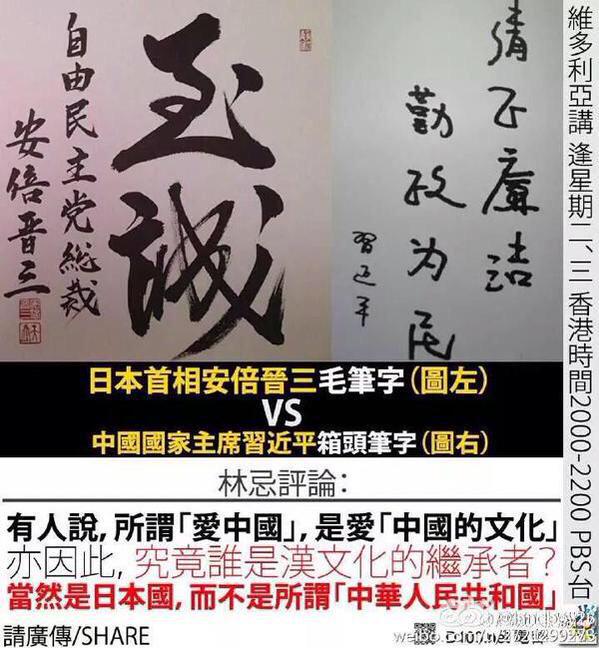 至誠
自由民主党総裁
安倍晋三
清正廉洁
勤政为民
習近平
日本首相安倍晉三毛筆字(圖左)
VS
中國國家主席習近平箱頭筆字(圖右)
林忌評論:
有人說,所謂「愛中國」,是愛「中國的文化」
亦因此,究竟誰是漢文化的繼承者?
當然是日本國,而不是所謂「中華人民共和國」
請廣傳/SHARE
維多利亞講 逢星期二、三 香港時間2000-2200 PBS台